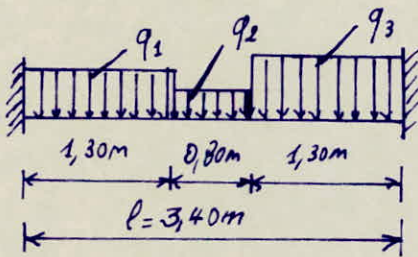 q1 q2 q3
1,30m 0,80m 1,30m
l=3,40m